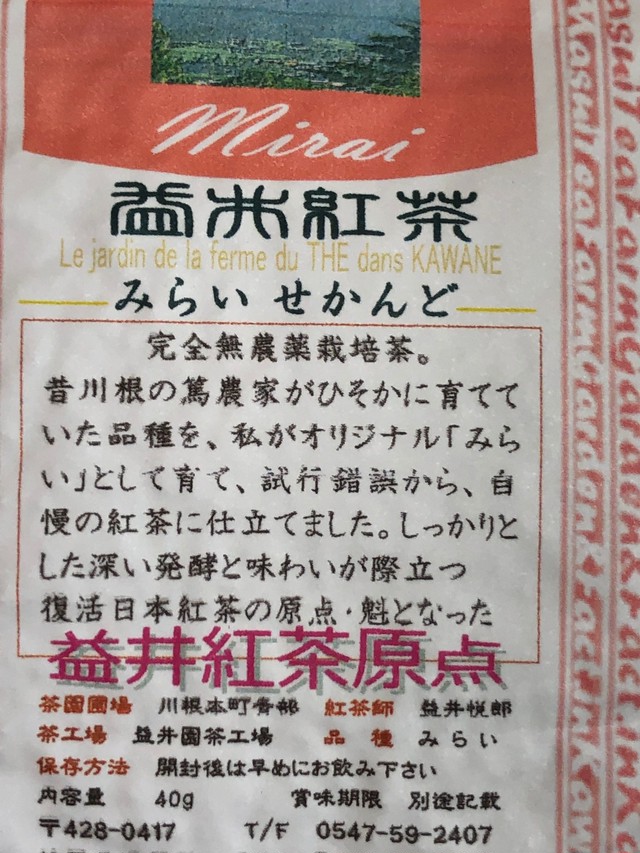 Mirai
益井紅茶
Le jardin de la ferme du THE dans KAWANE
みらい せかんど
完全無農薬栽培茶。
昔川根の篤農家がひそかに育てて
いた品種を、私がオリジナル「みら
い」として育て、試行錯誤から、自
慢の紅茶に仕立てました。しっかりと
した深い発酵と味わいが際立つ
復活日本紅茶の原点・魁となった
益井紅茶原点
茶園圃場 川根本町青部 紅茶師 益井悦郎
茶工場 益井園茶工場 品種 みらい
保存方法 開封後は早めにお飲み下さい
内容量 40g 賞味期限 別途記載
〒428-0417 T/F 0547-59-2407